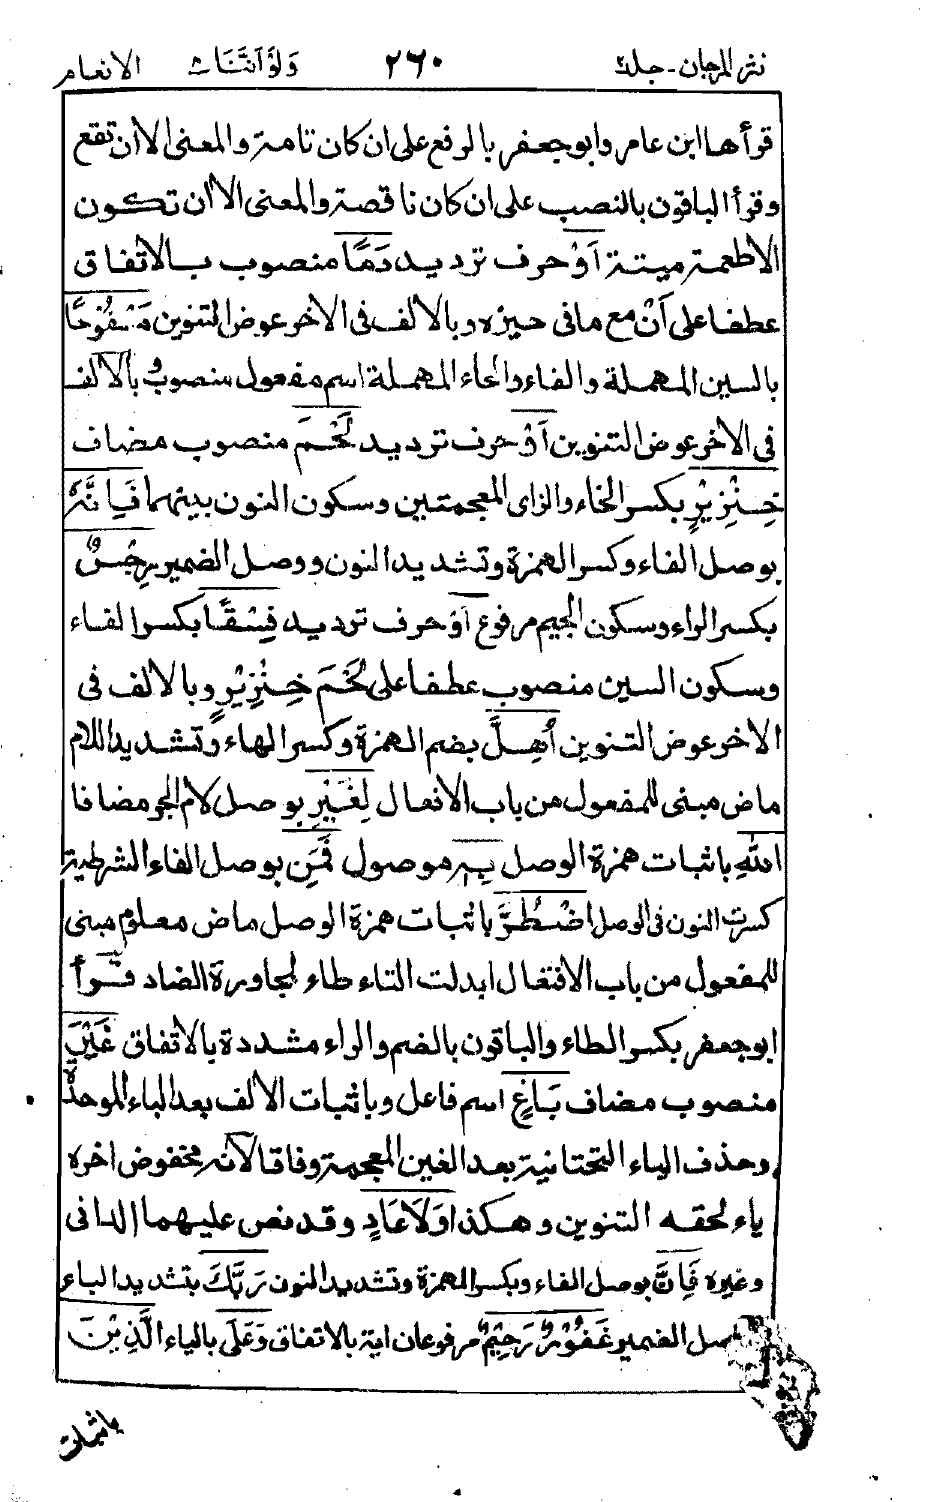 نثر المرجان - جلد٢ ٢٦٠ وَلَوْ اَنَّنَا ٨ الانعام
قرأها ابن عامر وابو جعفر بالرفع على ان كان تامة والمعنى الا أن تقع
وقرأ الباقون بالنصب على ان كان ناقصة والمعنى الا أن تكون
الاطعمة ميتة اَوْ حرف ترديد دَمًا منصوب بالاتفاق
عطفا على اَنْ مع ما فى حيزه وبالالف فى الاخر عوض التنوين مَسْفُوْحًا
بالسين المهملة والفاء والحاء المهملة اسم مفعول منصوب وبالالف
فى الاخر عوض التنوين اَوْ حرف ترديد لَحْمَ منصوب مضاف
خِنْزِيْرٍ بكسر الخاء والزاى المعجمتين وسكون النون بينهما فَاِنَّهٗ
بوصل الفاء وكسر الهمزة وتشديد النون ووصل الضمير رِجْسٌ
بكسر الراء وسكون الجيم مرفوع اَوْ حرف ترديد فِسْقًا بكسر الفاء
وسكون السين منصوب عطفا على لَحْمَ خِنْزِيْرٍ وبالالف فى
الاخر عوض التنوين اُهِلَّ بضم الهمزة وكسر الهاء وتشديد اللام
ماض مبنى للمفعول من باب الافعال لِغَيْرِ بوصل لام الجر مضافا
اللهِ باثبات همزة الوصل بِهٖ موصول فَمَنِ بوصل الفاء الشرطية
كسرت النون فى الوصل اضْطُرَّ باثبات همزة الوصل ماض معلوم مبنى
للمفعول من باب الافتعال ابدلت التاء طاء لمجاورة الضاد قرأ
ابو جعفر بكسر الطاء والباقون بالضم والراء مشددة بالاتفاق غَيْرَ
منصوب مضاف بَاغٍ اسم فاعل وباثبات الالف بعد الباء الموحدة
وحذف الياء التحتانية بعد الغين المعجمة وفاقا لانه مخفوض اخره
ياء لحقه التنوين وهكذا وَلَا عَادٍ وقد نص عليهما الدانى
وغيره فَاِنَّ بوصل الفاء وبكسر الهمزة وتشديد النون رَبَّكَ بتشديد الباء
الضمير غَفُوْرٌ رَحِيْمٌ مرفوعان اية بالاتفاق وَعَلَى بالياء الَّذِيْنَ
باثبات